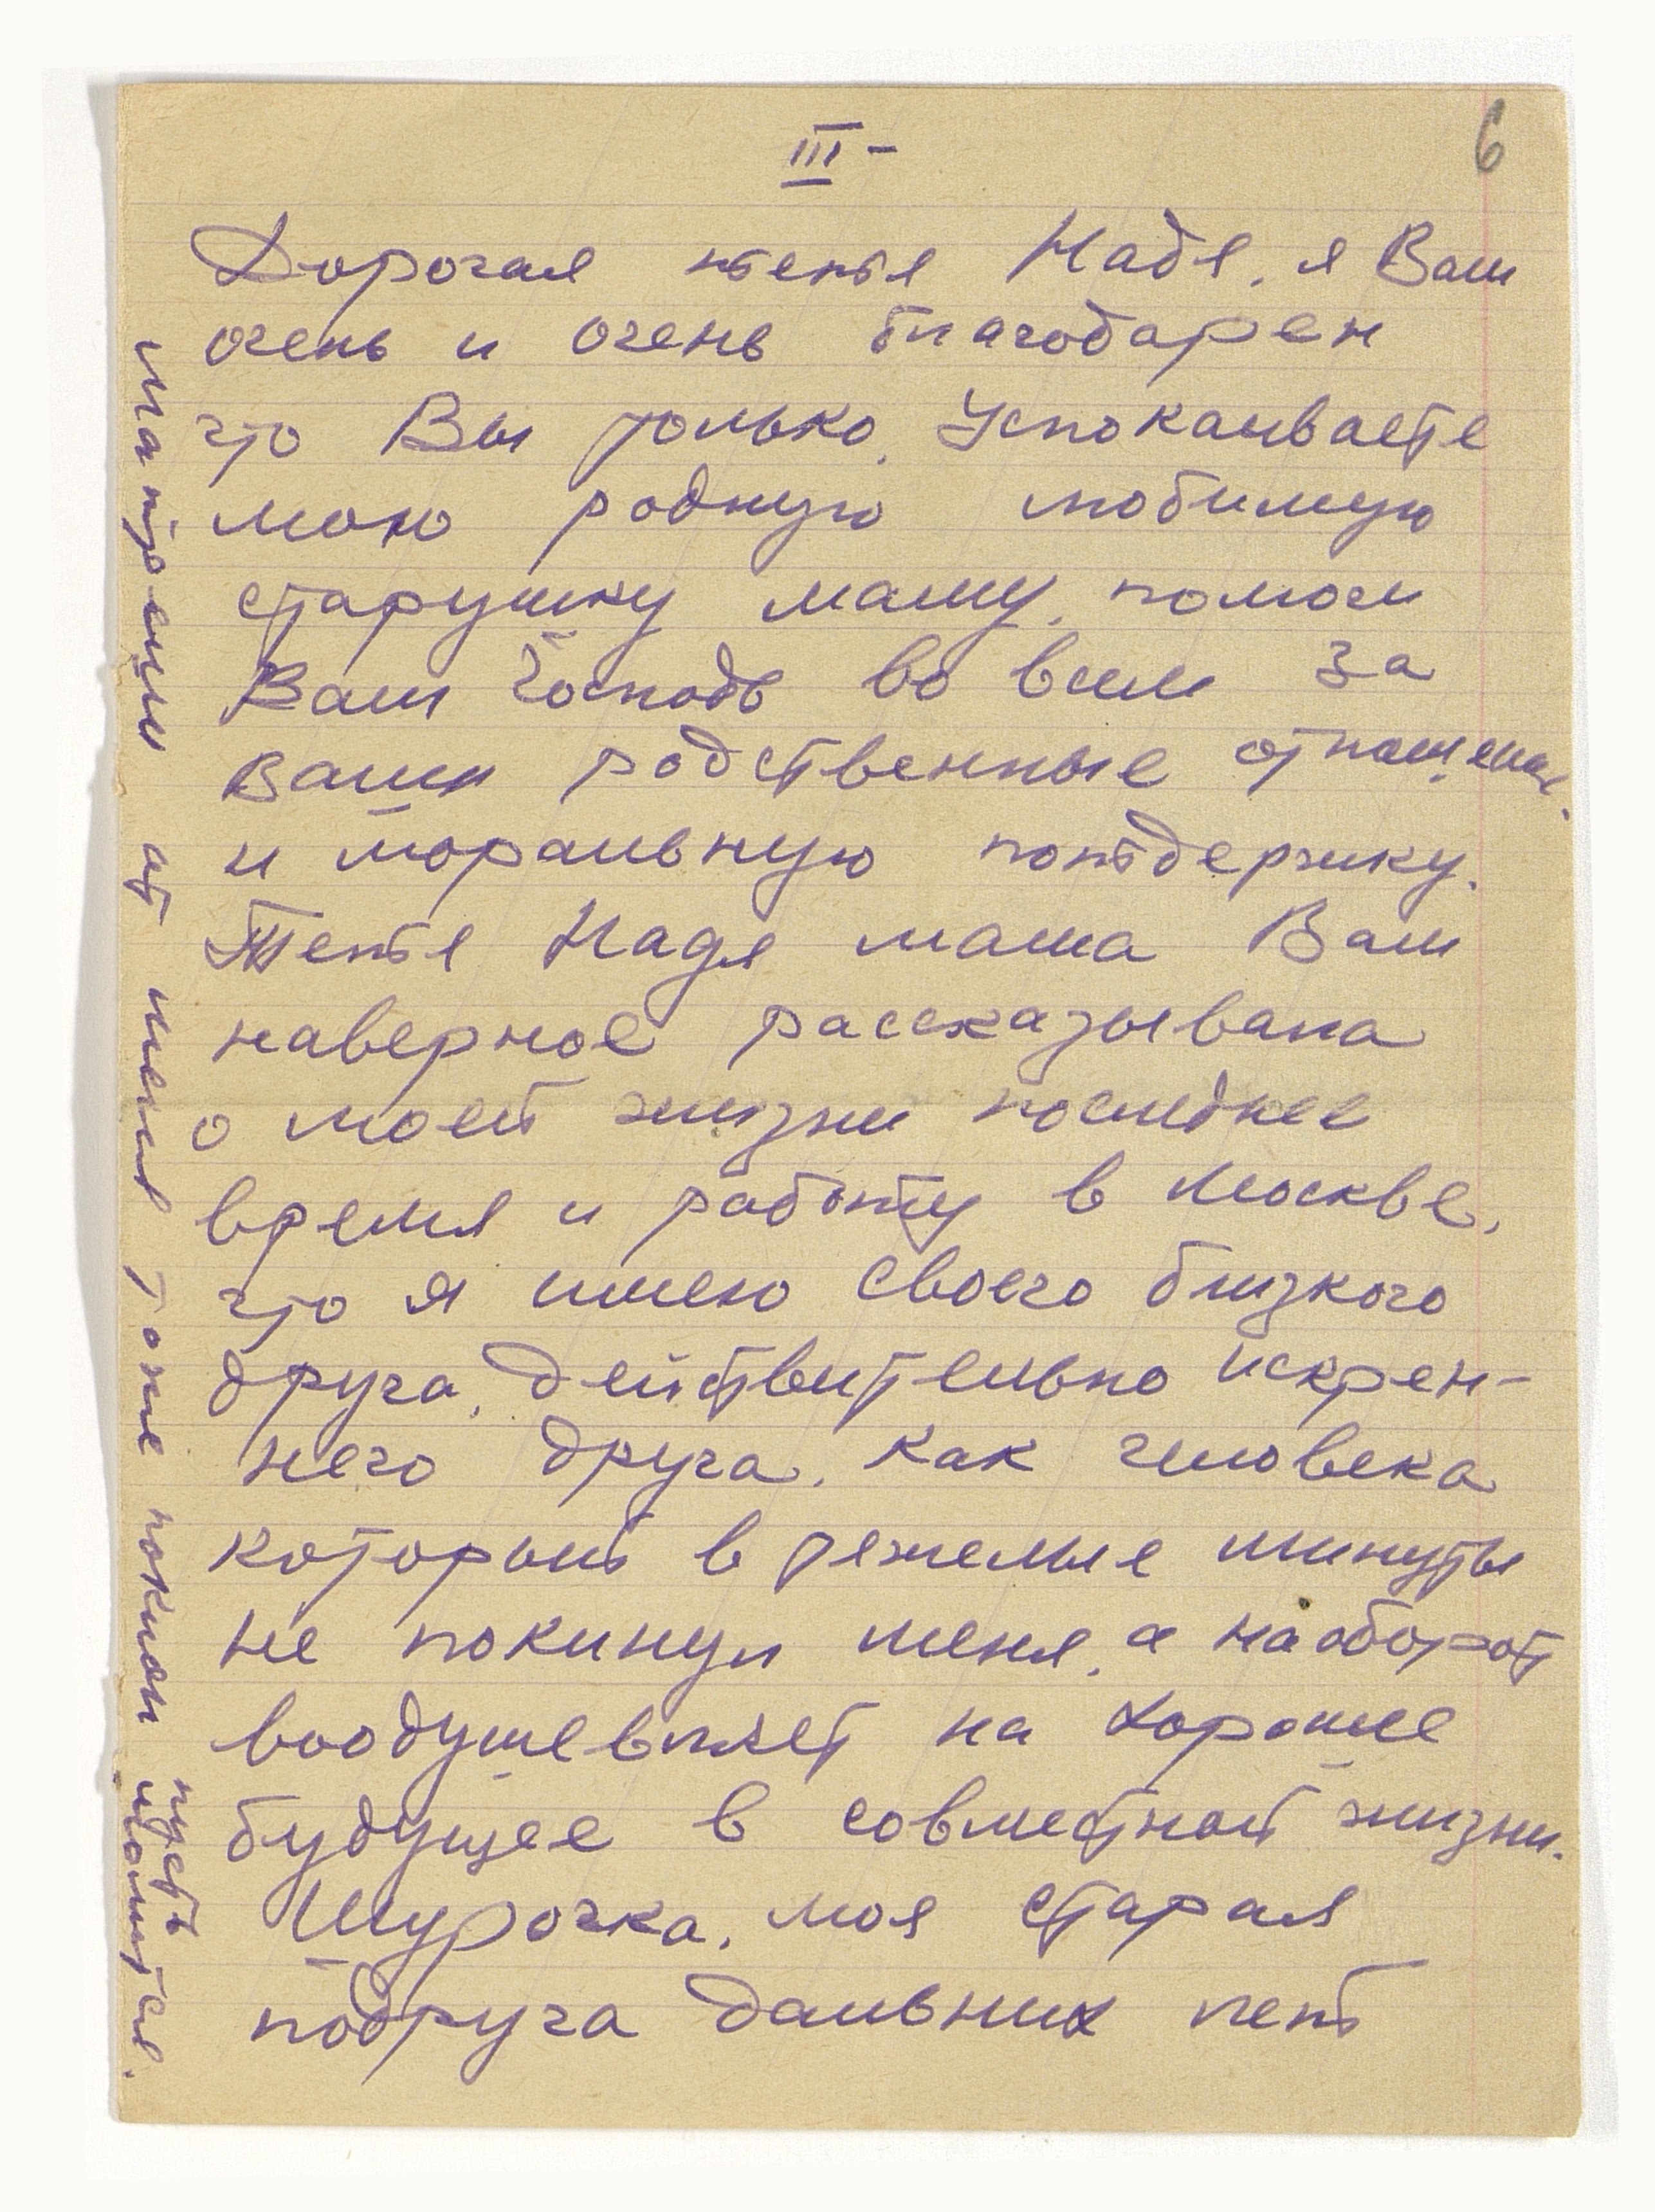 III -
6
Дорогая тетя Надя, я Вам
очень и очень благодарен
что Вы только, успокаиваете
мою родную любимую
старушку маму, помоги
Вам Господь во всем за
Ваши родственные отношения.
и моральную потдержку.
Тетя Надя мама Вам
наверное рассказывала
о моей жизни последнее
время и работу в Москве,
что я имею своего близкого
друга, действительно искрен-
него друга, как человека
который в тежелые минуты
не покинул меня, а наоборот
воодушевляет на хорошее
будущее в совместной жизни.
Шурочка, моя старая
подруга давних лет
Матреши от меня тоже поклон
пусть
молится.